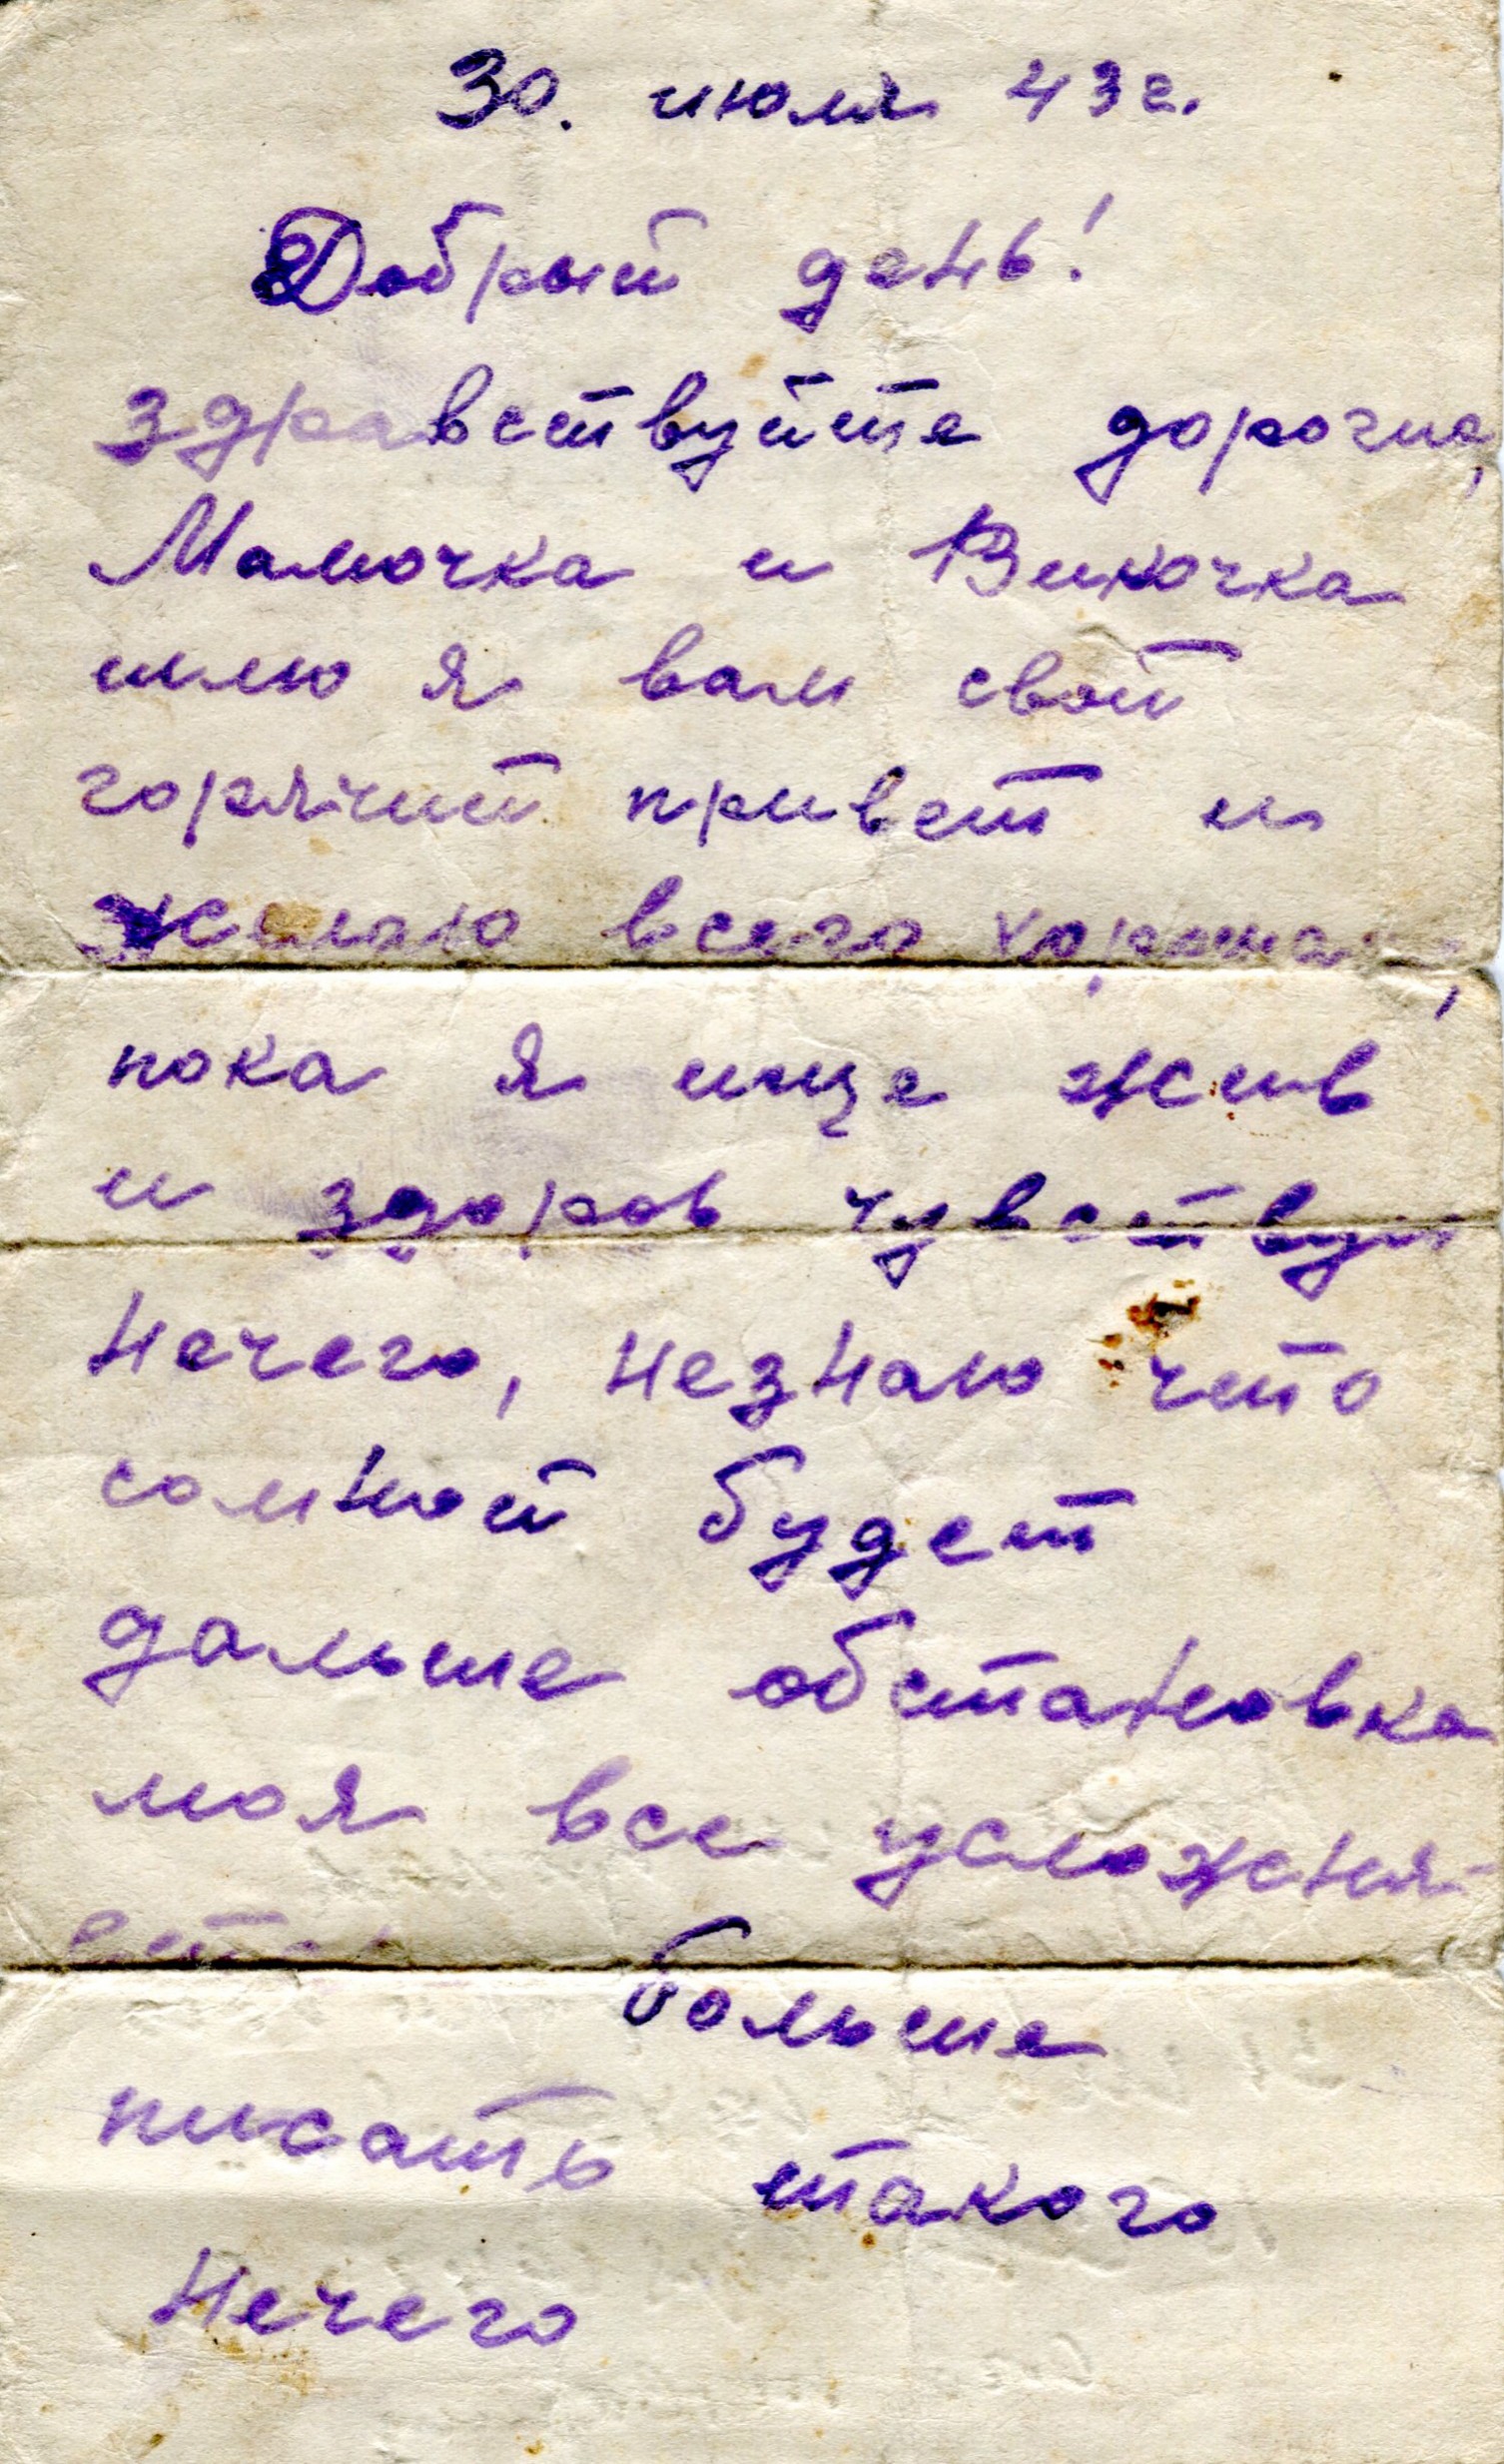 30. июля 43г.
Добрый день!
здравствуйте дорогие,
Мамочка и Викочка
шлю я вам свой
горячий привет и
желаю всего хорошего,
пока я ище жив
и здоров чувствую
нечего, незнаю что
сомной будет
дальше обстановка
моя все усложня-
больше
писать такого
нечего